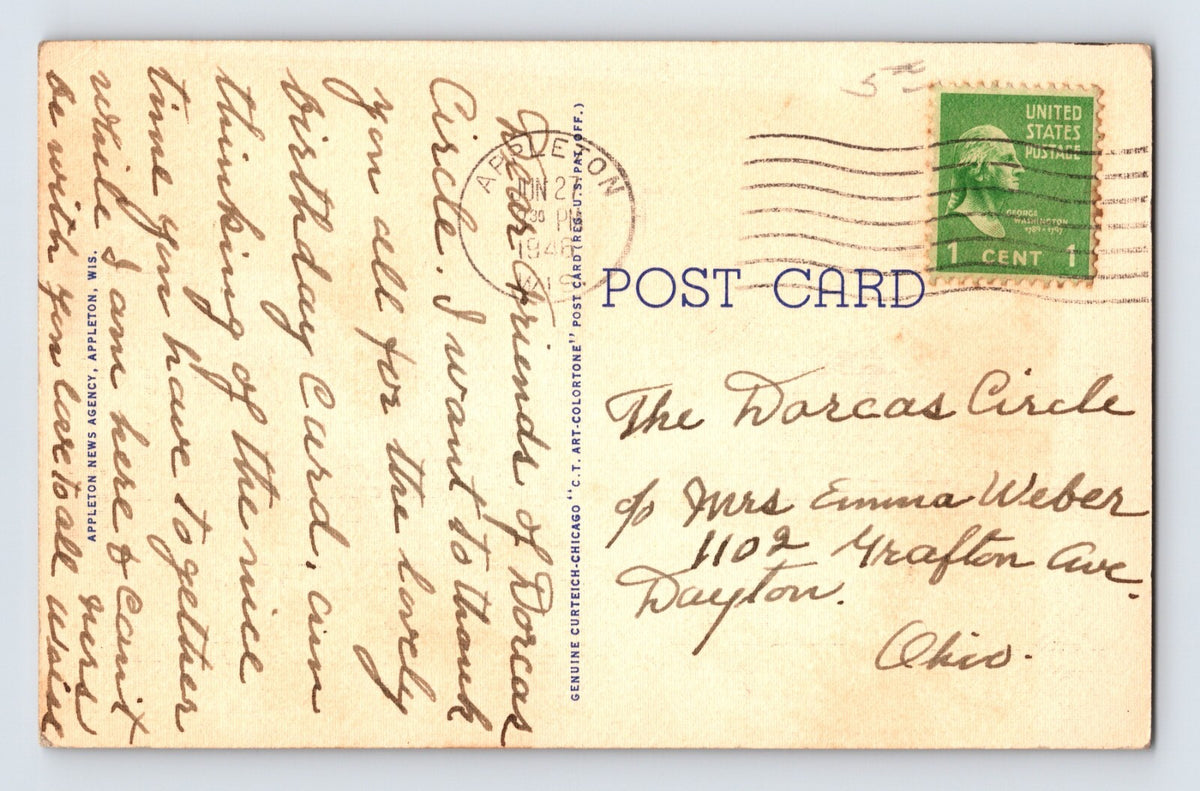 Dear Friends of Dorcas
Circle. I want to thank
you all for the lovely
birthday Card, am
thinking of the nice
time you have together
while I am here & cant
be with you love to all
Mrs
APPLETON NEWS AGENCY, APPLETON, WIS.
GENUINE CURTEICH-CHICAGO "C.T. ART-COLORTONE" POST CARD (REG. U.S. PAT. OFF.)
APPLETON
JUN 27
30 PM
1946
WIS
POST CARD
UNITED
STATES
POSTAGE
GEORGE
WASHINGTON
1789-1797
1 CENT 1
The Dorcas Circle
c/o Mrs Emma Weber
1102 Grafton Ave.
Dayton.
Ohio.